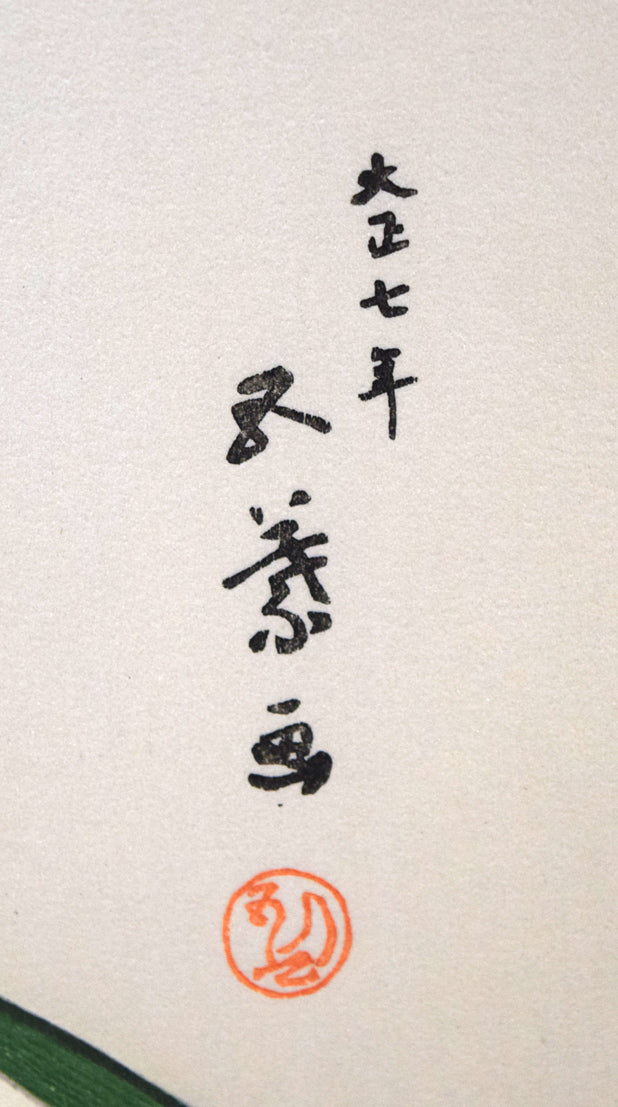 大正七年
五葉画